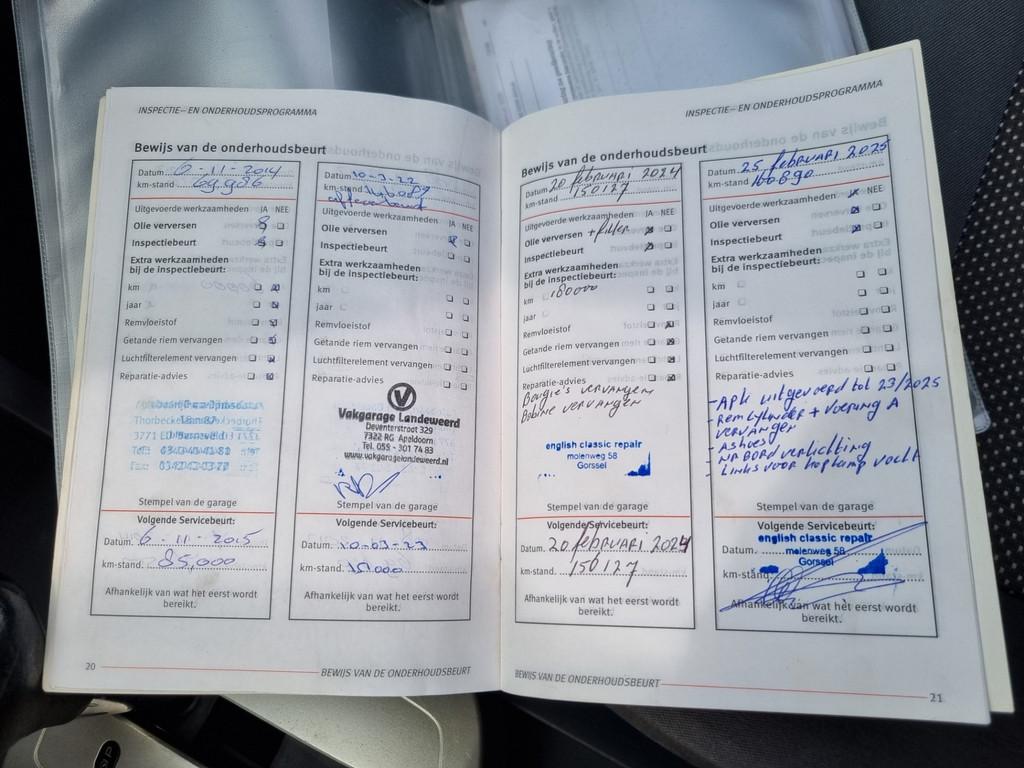 INSPECTIE- EN ONDERHOUDSPROGRAMMA
Bewijs van de onderhoudsbeurt
Datum 6-11-2014
km-stand 69.986
Uitgevoerde werkzaamheden JA NEE
Olie verversen
Inspectiebeurt
Extra werkzaamheden
bij de inspectiebeurt:
km
jaar
Remvloeistof
Getande riem vervangen
Luchtfilterelement vervangen
Reparatie-advies
Stempel van de garage
Volgende Servicebeurt:
Datum. 6-11-2015
km-stand. 85,000
Datum 10-3-22
km-stand
Uitgevoerde werkzaamheden JA NEE
Olie verversen
Inspectiebeurt
Extra werkzaamheden
bij de inspectiebeurt:
km
jaar
Remvloeistof
Getande riem vervangen
Luchtfilterelement vervangen
Reparatie-advies
Vakgarage Landeweerd
Deventerstraat 329
7322 RG Apeldoorn
Tel. 055 - 301 74 83
www.vakgaragelandeweerd.nl
Stempel van de garage
Volgende Servicebeurt:
Datum. 10-03-23
km-stand.
Afhankelijk van wat het eerst wordt
bereikt.
20
BEWIJS VAN DE ONDERHOUDSBEURT
INSPECTIE- EN ONDERHOUDSPROGRAMMA
Bewijs van de onderhoudsbeurt
Datum 20 februari 2024
km-stand 150127
Uitgevoerde werkzaamheden JA NEE
Olie verversen + filter
Inspectiebeurt
Extra werkzaamheden
bij de inspectiebeurt:
km 180000
jaar
Remvloeistof
Getande riem vervangen
Luchtfilterelement vervangen
Reparatie-advies
Bougie's vervangen
Bobine vervangen
english classic repair
molenweg 58
Gorssel
Stempel van de garage
Volgende Servicebeurt:
Datum. 20 februari 2024
km-stand. 150127
Afhankelijk van wat het eerst wordt
bereikt.
Datum 25 februari 2025
km-stand 160890
Uitgevoerde werkzaamheden JA NEE
Olie verversen
Inspectiebeurt
Extra werkzaamheden
bij de inspectiebeurt:
km
jaar
Remvloeistof
Getande riem vervangen
Luchtfilterelement vervangen
Reparatie-advies
- APK uitgevoerd tot 23/2025
- Remcylinder + voering A
vervangen
- Ashoes
verlichting
- Links voor koplamp vocht
Stempel van de garage
Volgende Servicebeurt:
english classic repair
Datum.
molenweg 58
Gorssel
km-stand
Afhankelijk van wat het eerst wordt
bereikt.
BEWIJS VAN DE ONDERHOUDSBEURT
21